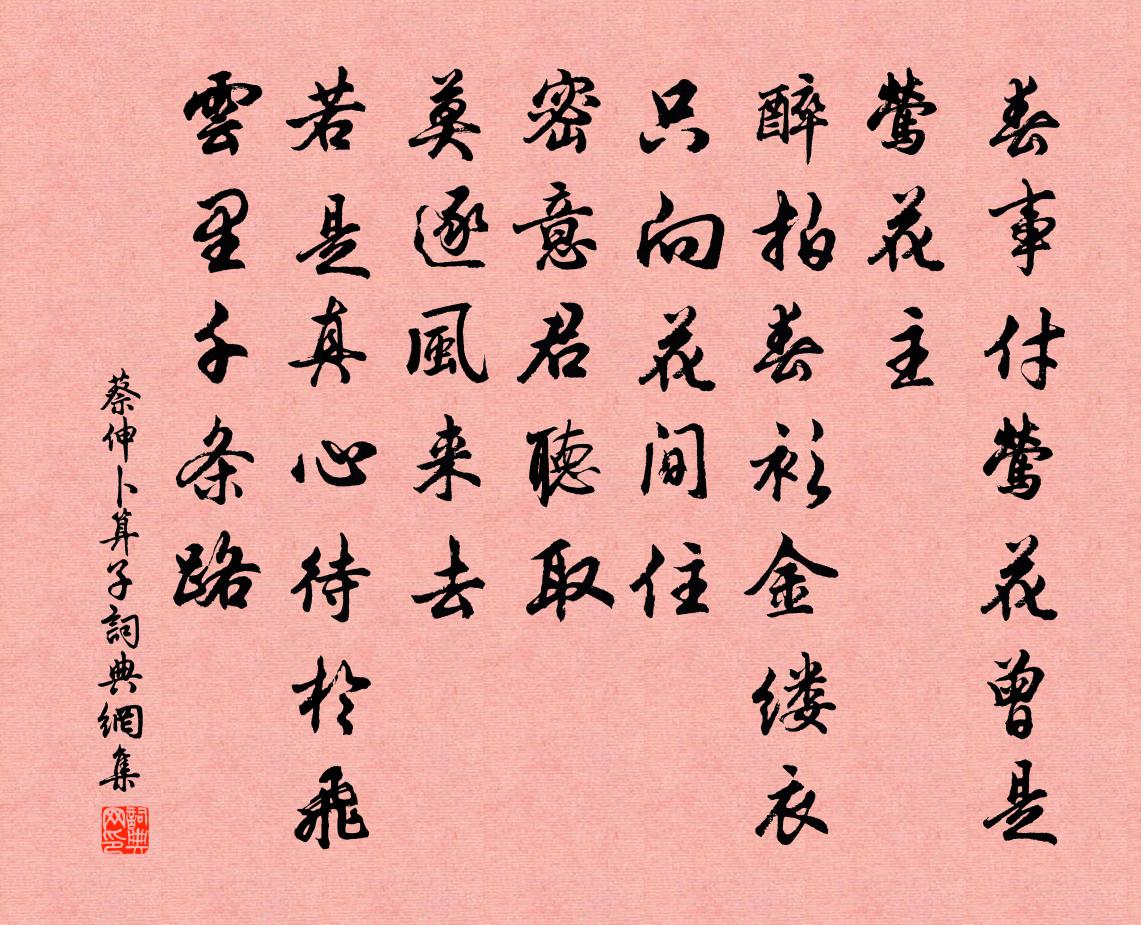 春事付莺花曾是
莺花主
醉拍春衫金缕衣
只向花间住
密意君聽取
莫逐風来去
若是真心待於飛
雲里千条路
蔡伸卜算子詞典網集
詞典网印